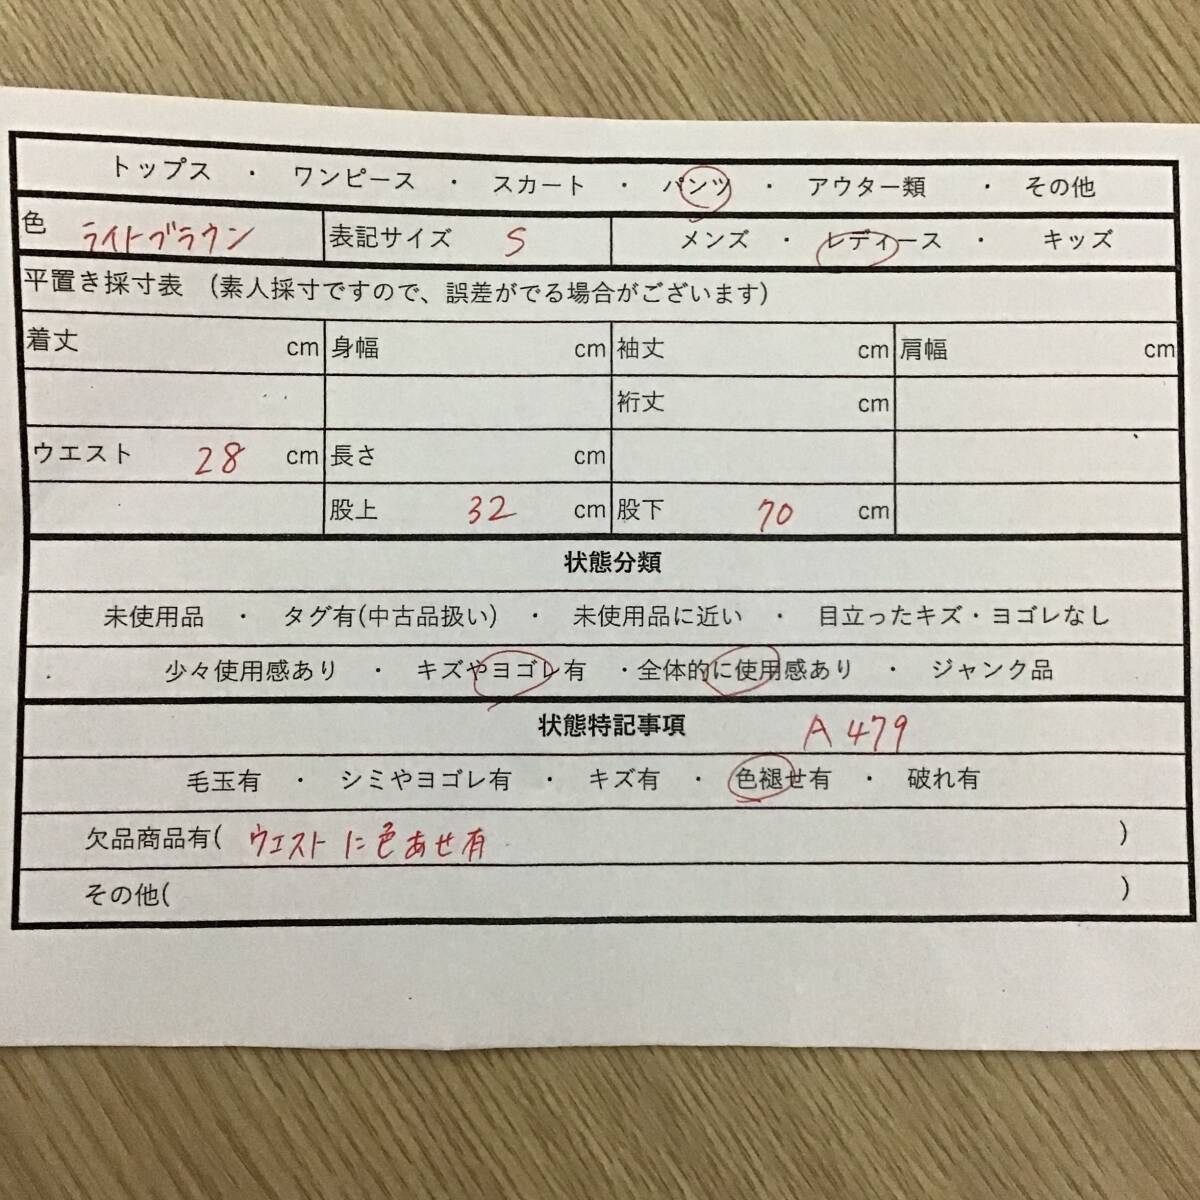 トップス ・ ワンピース ・ スカート ・ パンツ ・ アウター類 ・ その他
色 ライトブラウン 表記サイズ S メンズ ・ レディース ・ キッズ
平置き採寸表 (素人採寸ですので、誤差がでる場合がございます)
着丈 cm 身幅 cm 袖丈 cm 肩幅 cm
裄丈 cm
ウエスト 28 cm 長さ cm
股上 32 cm 股下 70 cm
状態分類
未使用品 ・ タグ有(中古品扱い) ・ 未使用品に近い ・ 目立ったキズ・ヨゴレなし
少々使用感あり ・ キズやヨゴレ有 ・全体的に使用感あり ・ ジャンク品
状態特記事項 A 479
毛玉有 ・ シミやヨゴレ有 ・ キズ有 ・ 色褪せ有 ・ 破れ有
欠品商品有( ウエストに色あせ有 )
その他( )